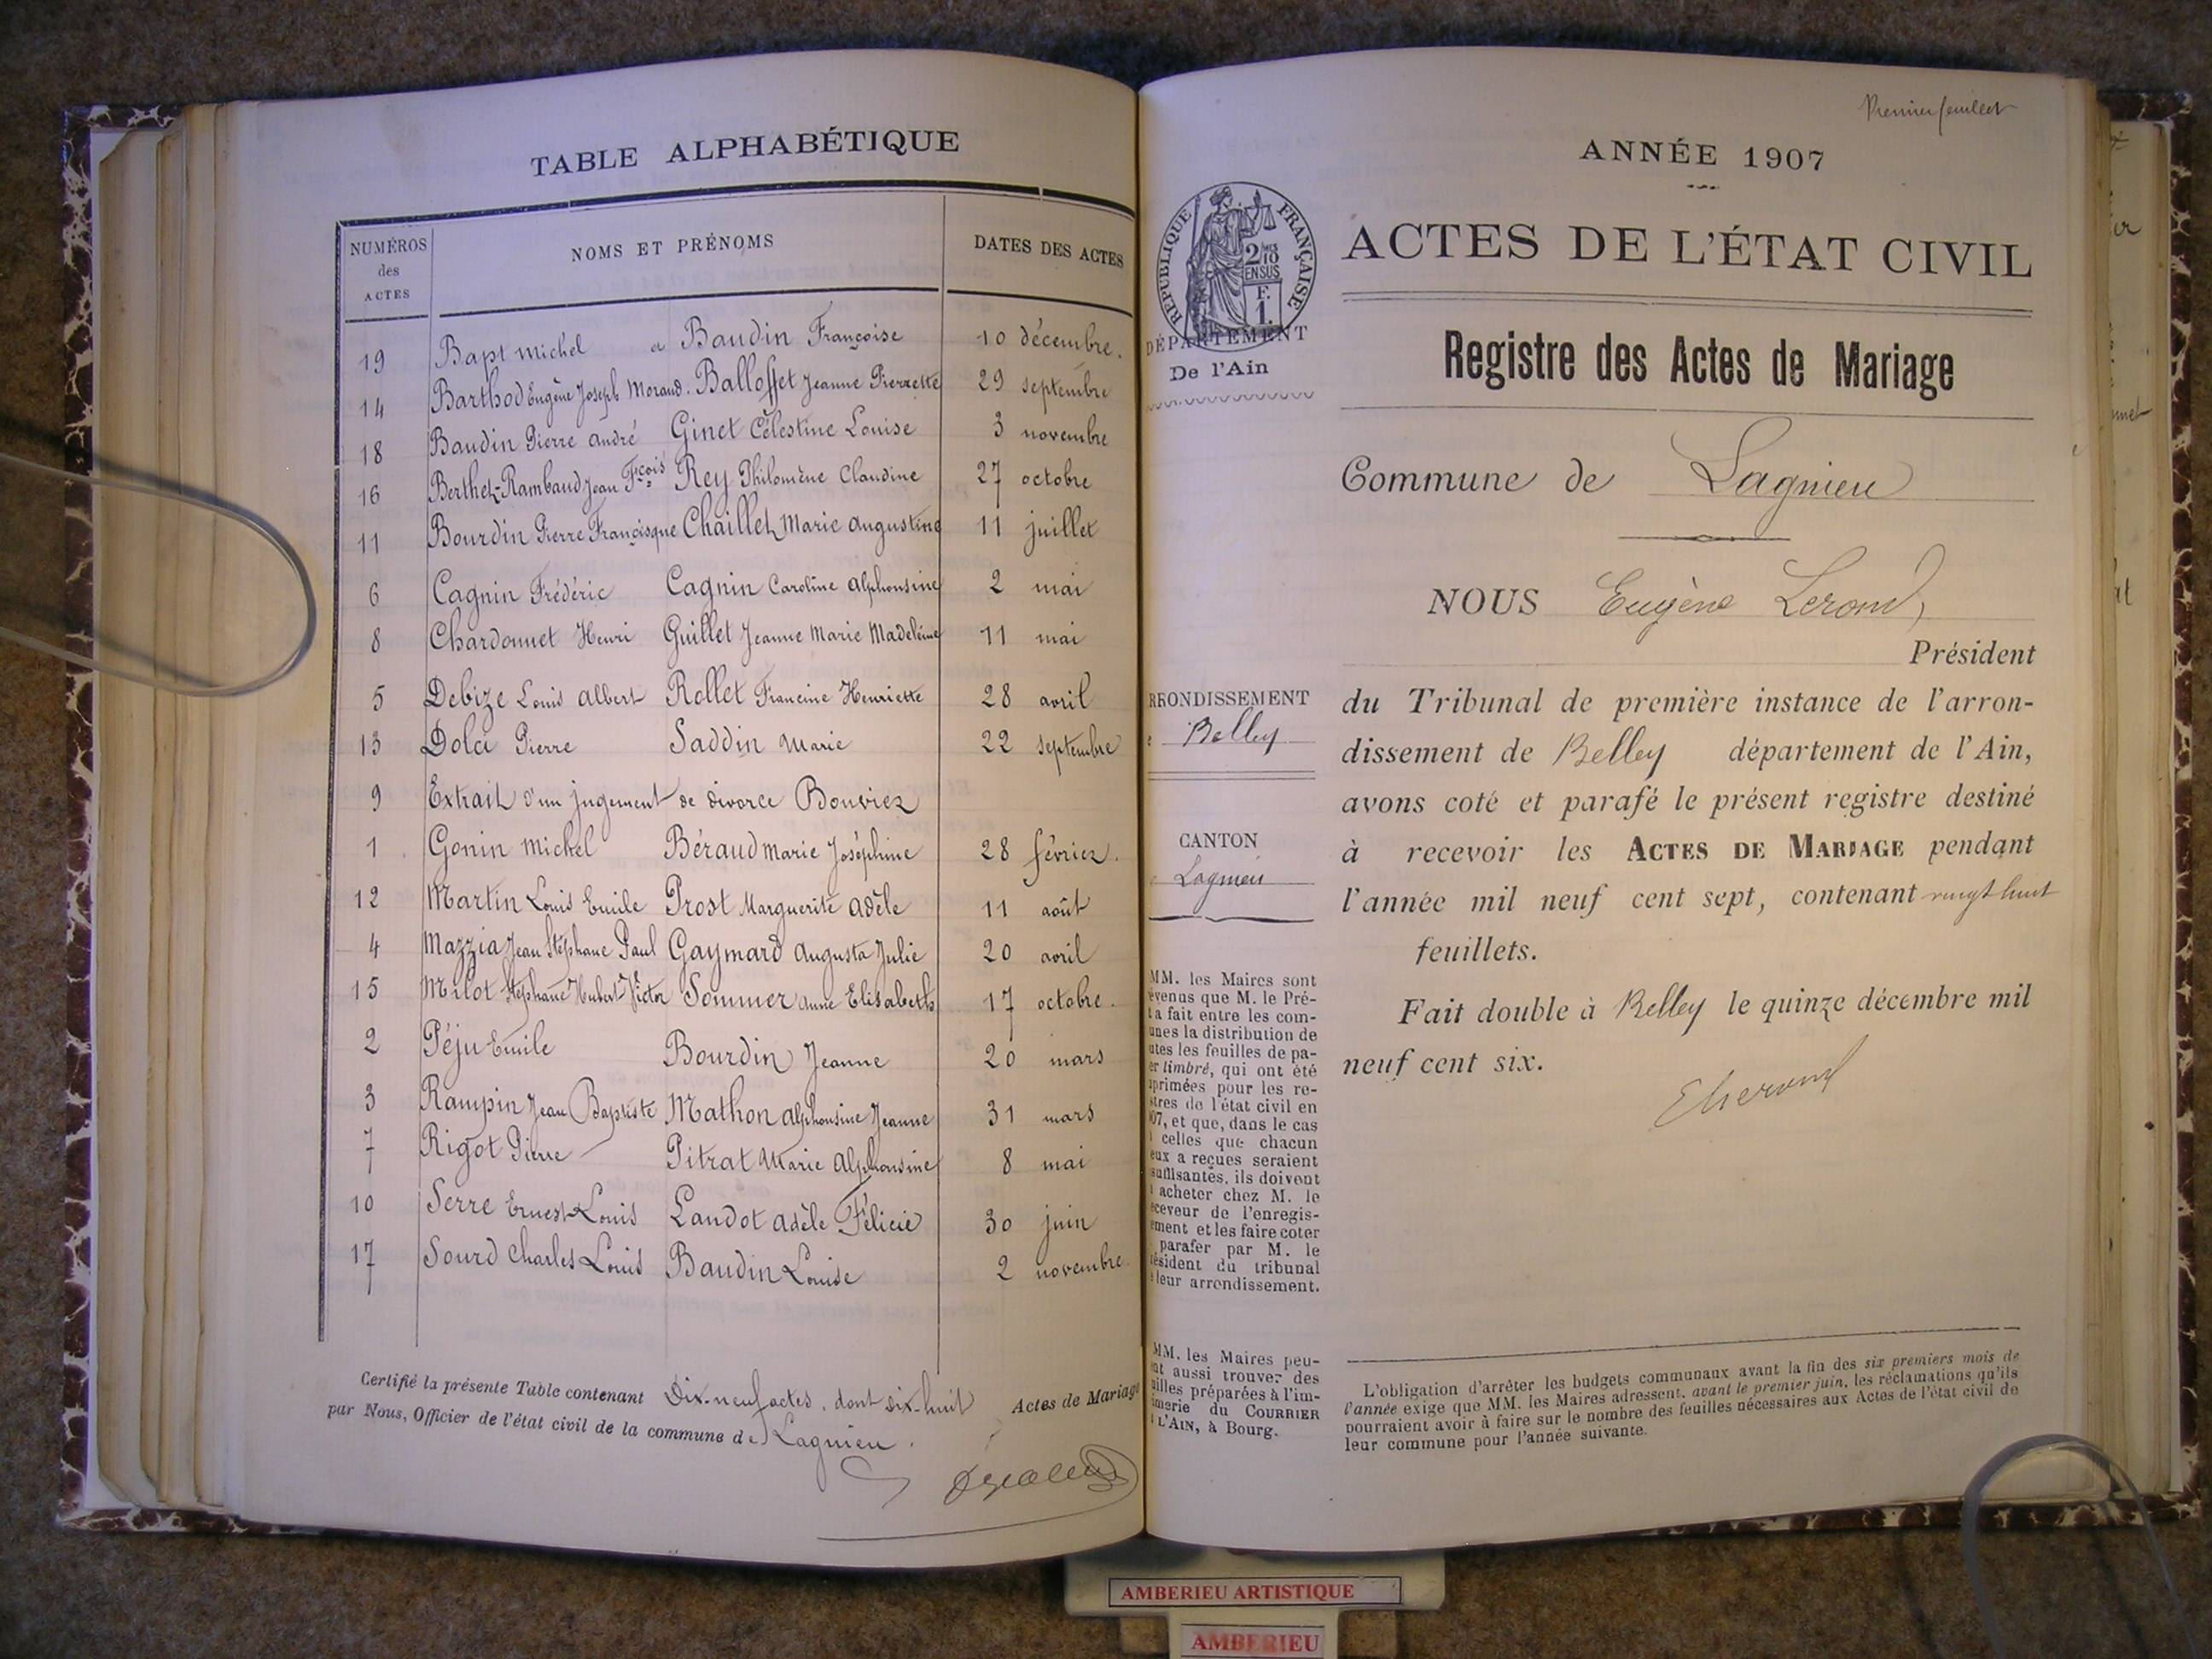 TABLE ALPHABÉTIQUE
NUMÉROS des ACTES
NOMS ET PRÉNOMS
DATES DES ACTES
19 Bapt Michel et Baudin Françoise 10 décembre.
14 Barthod Eugène Joseph Morand. Balloffet Jeanne Pierrette 29 septembre
18 Baudin Pierre André Ginet Célestine Louise 3 novembre
16 Berthet-Rambaud Jean Fçois Rey Philomène Claudine 27 octobre
11 Bourdin Pierre Françisque Chaillet Marie Augustine 11 juillet
6 Cagnin Frédéric Cagnin Caroline Alphonsine 2 mai
8 Chardonnet Henri Guillet Jeanne Marie Madeleine 11 mai
5 Debize Louis Albert Rollet Francine Henriette 28 avril
13 Dolci Pierre Saddin Marie 22 septembre
9 Extrait d'un jugement de divorce Bouvier
1 Gonin Michel Béraud Marie Joséphine 28 février.
12 Martin Louis Emile Prost Marguerite Adèle 11 août
4 Mazzia Jean Stéphane Paul Gaymard Augusta Julie 20 avril
15 Milot Stéphane Hubert Victor Sommer Anne Elisabeth 17 octobre.
2 Péju Emile Bourdin Jeanne 20 mars
3 Rampin Jean Baptiste Mathon Alphonsine Jeanne 31 mars
7 Rigot Pierre Pitrat Marie Alphonsine 8 mai
10 Serre Ernest Louis Landot Adèle Félicie 30 juin
17 Sourd Charles Louis Baudin Louise 2 novembre.
Certifié la présente Table contenant Dix-neuf actes, dont dix-huit Actes de Mariage
par Nous, Officier de l'état civil de la commune de Lagnieu.
Premier feuillet
ANNÉE 1907
RÉPUBLIQUE FRANÇAISE
2/10 EN SUS
F. 1.
ACTES DE L'ÉTAT CIVIL
DÉPARTEMENT
De l'Ain
Registre des Actes de Mariage
Commune de Lagnieu
NOUS Eugène Lerond,
Président
RRONDISSEMENT
Belley
du Tribunal de première instance de l'arron-
dissement de Belley département de l'Ain,
avons coté et parafé le présent registre destiné
CANTON
Lagnieu
à recevoir les ACTES DE MARIAGE pendant
l'année mil neuf cent sept, contenant vingt huit
feuillets.
Fait double à Belley le quinze décembre mil
neuf cent six.
ELerond
MM. les Maires sont
évenus que M. le Pré-
t a fait entre les com-
unes la distribution de
utes les feuilles de pa-
er timbré, qui ont été
primées pour les re-
stres de l'état civil en
07, et que, dans le cas
celles que chacun
eux a reçues seraient
suffisantes, ils doivent
acheter chez M. le
eceveur de l'enregis-
ement et les faire coter
parafer par M. le
résident du tribunal
leur arrondissement.
MM. les Maires peu-
nt aussi trouver des
uilles préparées à l'im-
imerie du COURRIER
L'AIN, à Bourg.
L'obligation d'arrêter les budgets communaux avant la fin des six premiers mois de
l'année exige que MM. les Maires adressent, avant le premier juin, les réclamations qu'ils
pourraient avoir à faire sur le nombre des feuilles nécessaires aux Actes de l'état civil de
leur commune pour l'année suivante.
AMBERIEU ARTISTIQUE
AMBERIEU